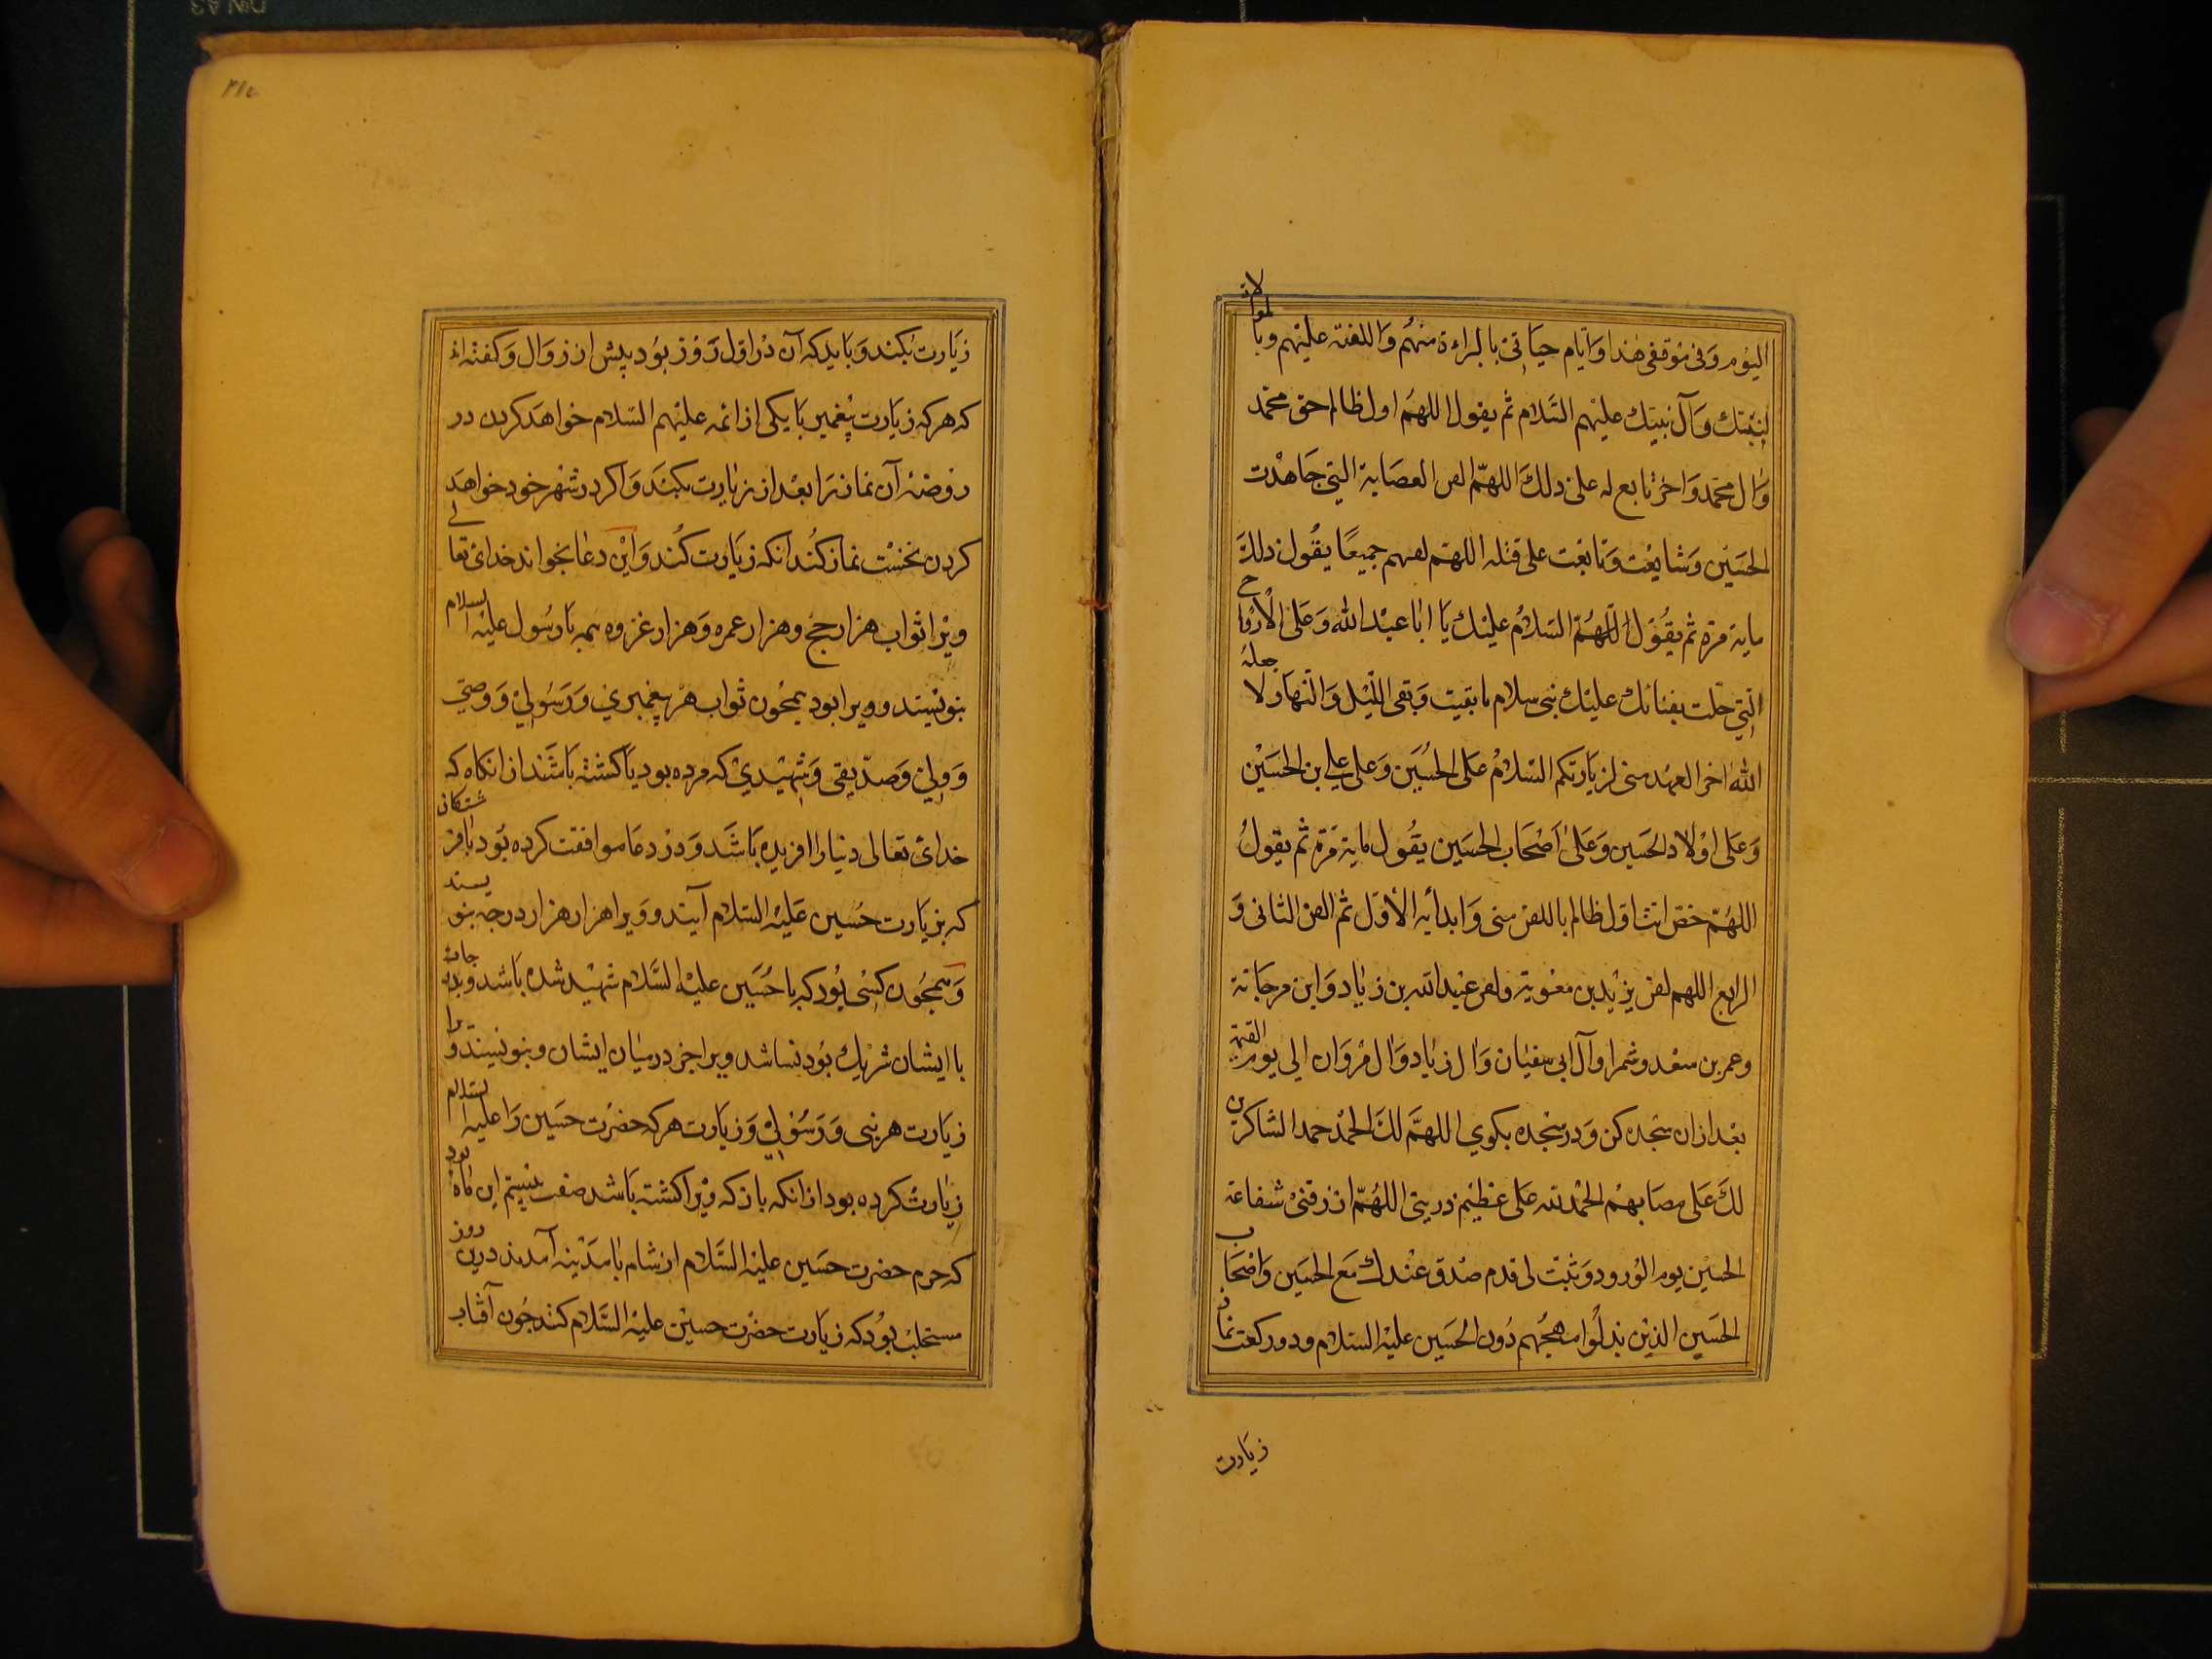 اليوم وفى موقفى هذا وايام حياتى بالبراءة منهم واللعنة عليهم وبالموالات
لنبيك وآل نبيك عليهم السلام ثم يقول اللهم اول ظالم حق محمد
وال محمد واخر تابع له على ذلك اللهم العن العصابة التى جاهدت
الحسين وشايعت وتابعت على قتله اللهم العنهم جميعا يقول ذلك
ماية مرة ثم يقول اللهم السلام عليك يا ابا عبد الله وعلى الارواح
التى حلت بفنائك عليك منى سلام ما بقيت وبقى الليل والنهار ولا جعله
الله اخر العهد منى لزيارتكم السلام على الحسين وعلى على بن الحسين
وعلى اولاد الحسين وعلى اصحاب الحسين يقول ماية مرة ثم يقول
اللهم خص انت اول ظالم باللعن منى وابدأ به الأول ثم العن الثانى و
الرابع اللهم لعن يزيد بن معوية ولعن عبيد الله بن زياد وابن مرجانة
وعمر بن سعد وشمرا وآل ابى سفيان وال زياد وال مروان الى يوم القيمة
بعد ازان سجده كن ودر سجده بكوي اللهم لك الحمد حمد الشاكرين
لك على مصابهم الحمد لله على عظيم رزيتى اللهم ارزقنى شفاعة
الحسين يوم الورود وثبت لى قدم صدق عندك مع الحسين واصحاب
الحسين الذين بذلوا مهجهم دون الحسين عليه السلام ودو ركعت نماز
زيارت
زيارت بكند وبايد كه آن در اول روز بود پيش از زوال وكفته اند
كه هر كه زيارت پيغمبر يا يكى از ائمه عليهم السلام خواهد كردن در
روضهٔ آن نماز را بعد از زيارت بكند واكر در شهر خود خواهد
كردن نخست نماز كند انكه زيارت كند واين دعا بخواند خداى تعالى
ويرا ثواب هزار حج وهزار عمره وهزار غزوه همه با رسول عليه السلام
بنويسند وويرا بود همچون ثواب هر پيغمبري ورسولي ووصيي
وولي وصديقى وشهيدي كه مرده بود يا كشته باشند از انكاه كه
خداى تعالى دنيا را افريده باشد ودر دعا موافقت كرده بود با فرشتكان
كه بزيارت حسين عليه السلام آيند وويرا هزار هزار درجه بنويسند
وهمچون كسى بود كه با حسين عليه السلام شهيد شده باشد وبدرجات
با ايشان شريك بود نباشد ويرا جز در ميان ايشان وبنويسند ويرا
زيارت هر نبى ورسولي وزيارت هر كه حضرت حسين را عليه السلام
زيارت كرده بود از انكه باز كه ويرا كشته باشد صفت بيستم اين ماه بود
كه حرم حضرت حسين عليه السلام از شام با مدينه آمدند درين روز
مستحب بود كه زيارت حضرت حسين عليه السلام كند چون آفتاب